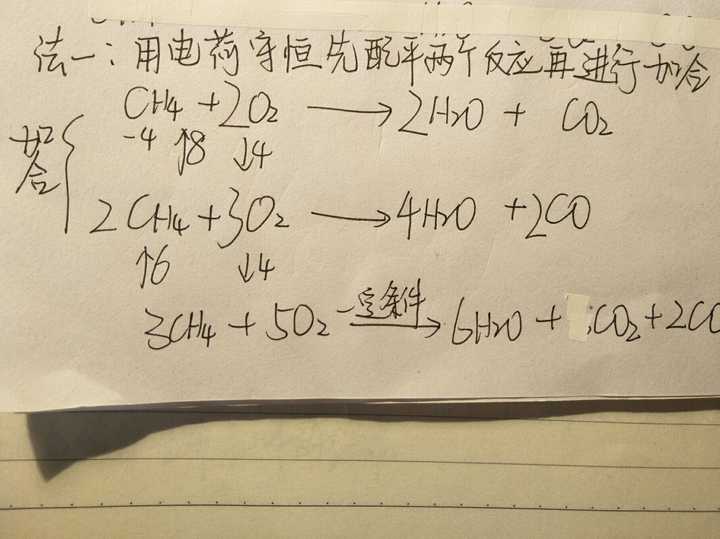 法一：用电荷守恒先配平两个反应再进行加合
CH4 + 2O2 → 2H2O + CO2
-4 ↑8 ↓4
加合
2CH4 + 3O2 → 4H2O + 2CO
↑6 ↓4
3CH4 + 5O2 一定条件→ 6H2O + CO2 + 2CO